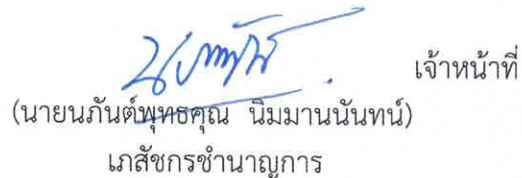 เจ้าหน้าที่
(นายนภันต์พุทธคุณ นิมมานนันทน์)
เภสัชกรชำนาญการ